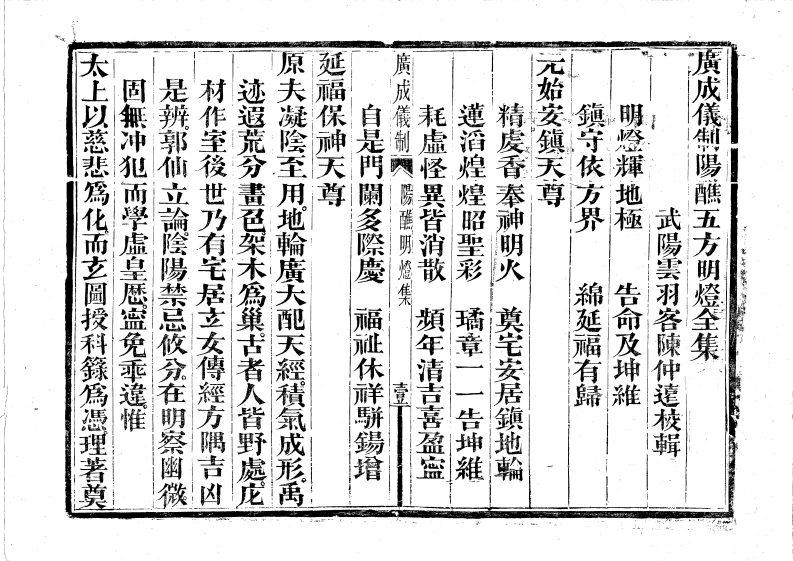 廣成儀制陽醮五方明燈全集
武陽雲羽客陳仲遠校輯
明燈輝地極　告命及坤維
鎮守依方界　綿延福有歸
元始安鎮天尊
精虔香奉神明火　奠宅安居鎮地輪
蓮滔煌煌昭聖彩　璚章一一告坤維
耗虛怪異皆消散　頻年清吉喜盈寍
廣成儀制　陽醮明燈集　壹
自是門闌多際慶　福祉休祥駢錫增
延福保神天尊
原夫凝陰至用。地輪廣大配天經。積氣成形。禹
迹遐荒分畫邑。架木爲巢。古者人皆野處。庀
材作室後世乃有宅居玄女傳經方隅吉凶
是辨。郭仙立論。陰陽禁忌攸分。在明察幽微
固無冲犯而學虛皇歷。寍免乖違。惟
太上以慈悲爲化。而玄圖授科籙爲憑。理著奠